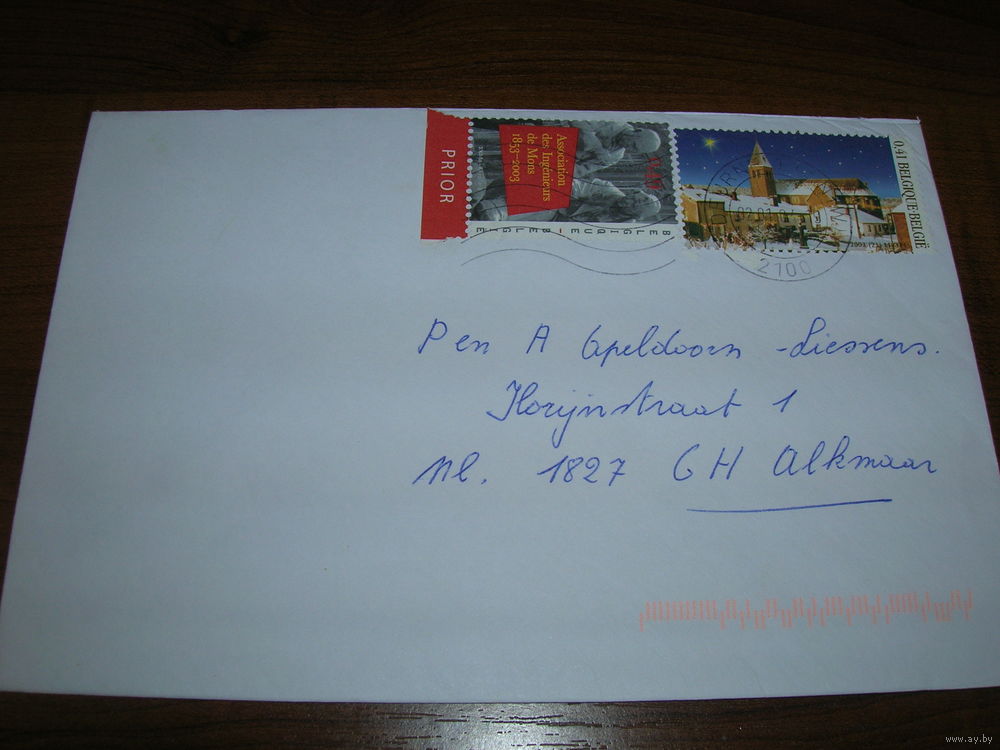 PRIOR
Association
des Ingénieurs
de Mons
1853-2003
0,41
BELGIQUE-BELGIE
0,41 BELGIQUE-BELGIË
2100
P en A Apeldoorn - Liessens.
Florijnstraat 1
Nl. 1827 GH Alkmaar
www.ay.by